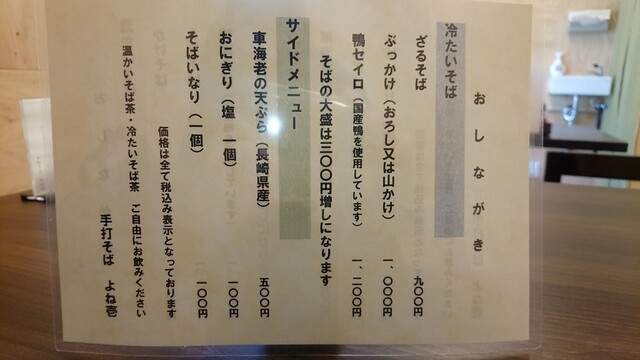 おしながき
冷たいそば
ざるそば 九〇〇円
ぶっかけ（おろし又は山かけ） 一、〇〇〇円
鴨セイロ（国産鴨を使用しています） 一、二〇〇円
そばの大盛は三〇〇円増しになります
サイドメニュー
車海老の天ぷら（長崎県産） 五〇〇円
おにぎり（塩 一個） 一〇〇円
そばいなり（一個） 一〇〇円
価格は全て税込み表示となっております
温かいそば茶・冷たいそば茶 ご自由にお飲みください
手打そば よね壱